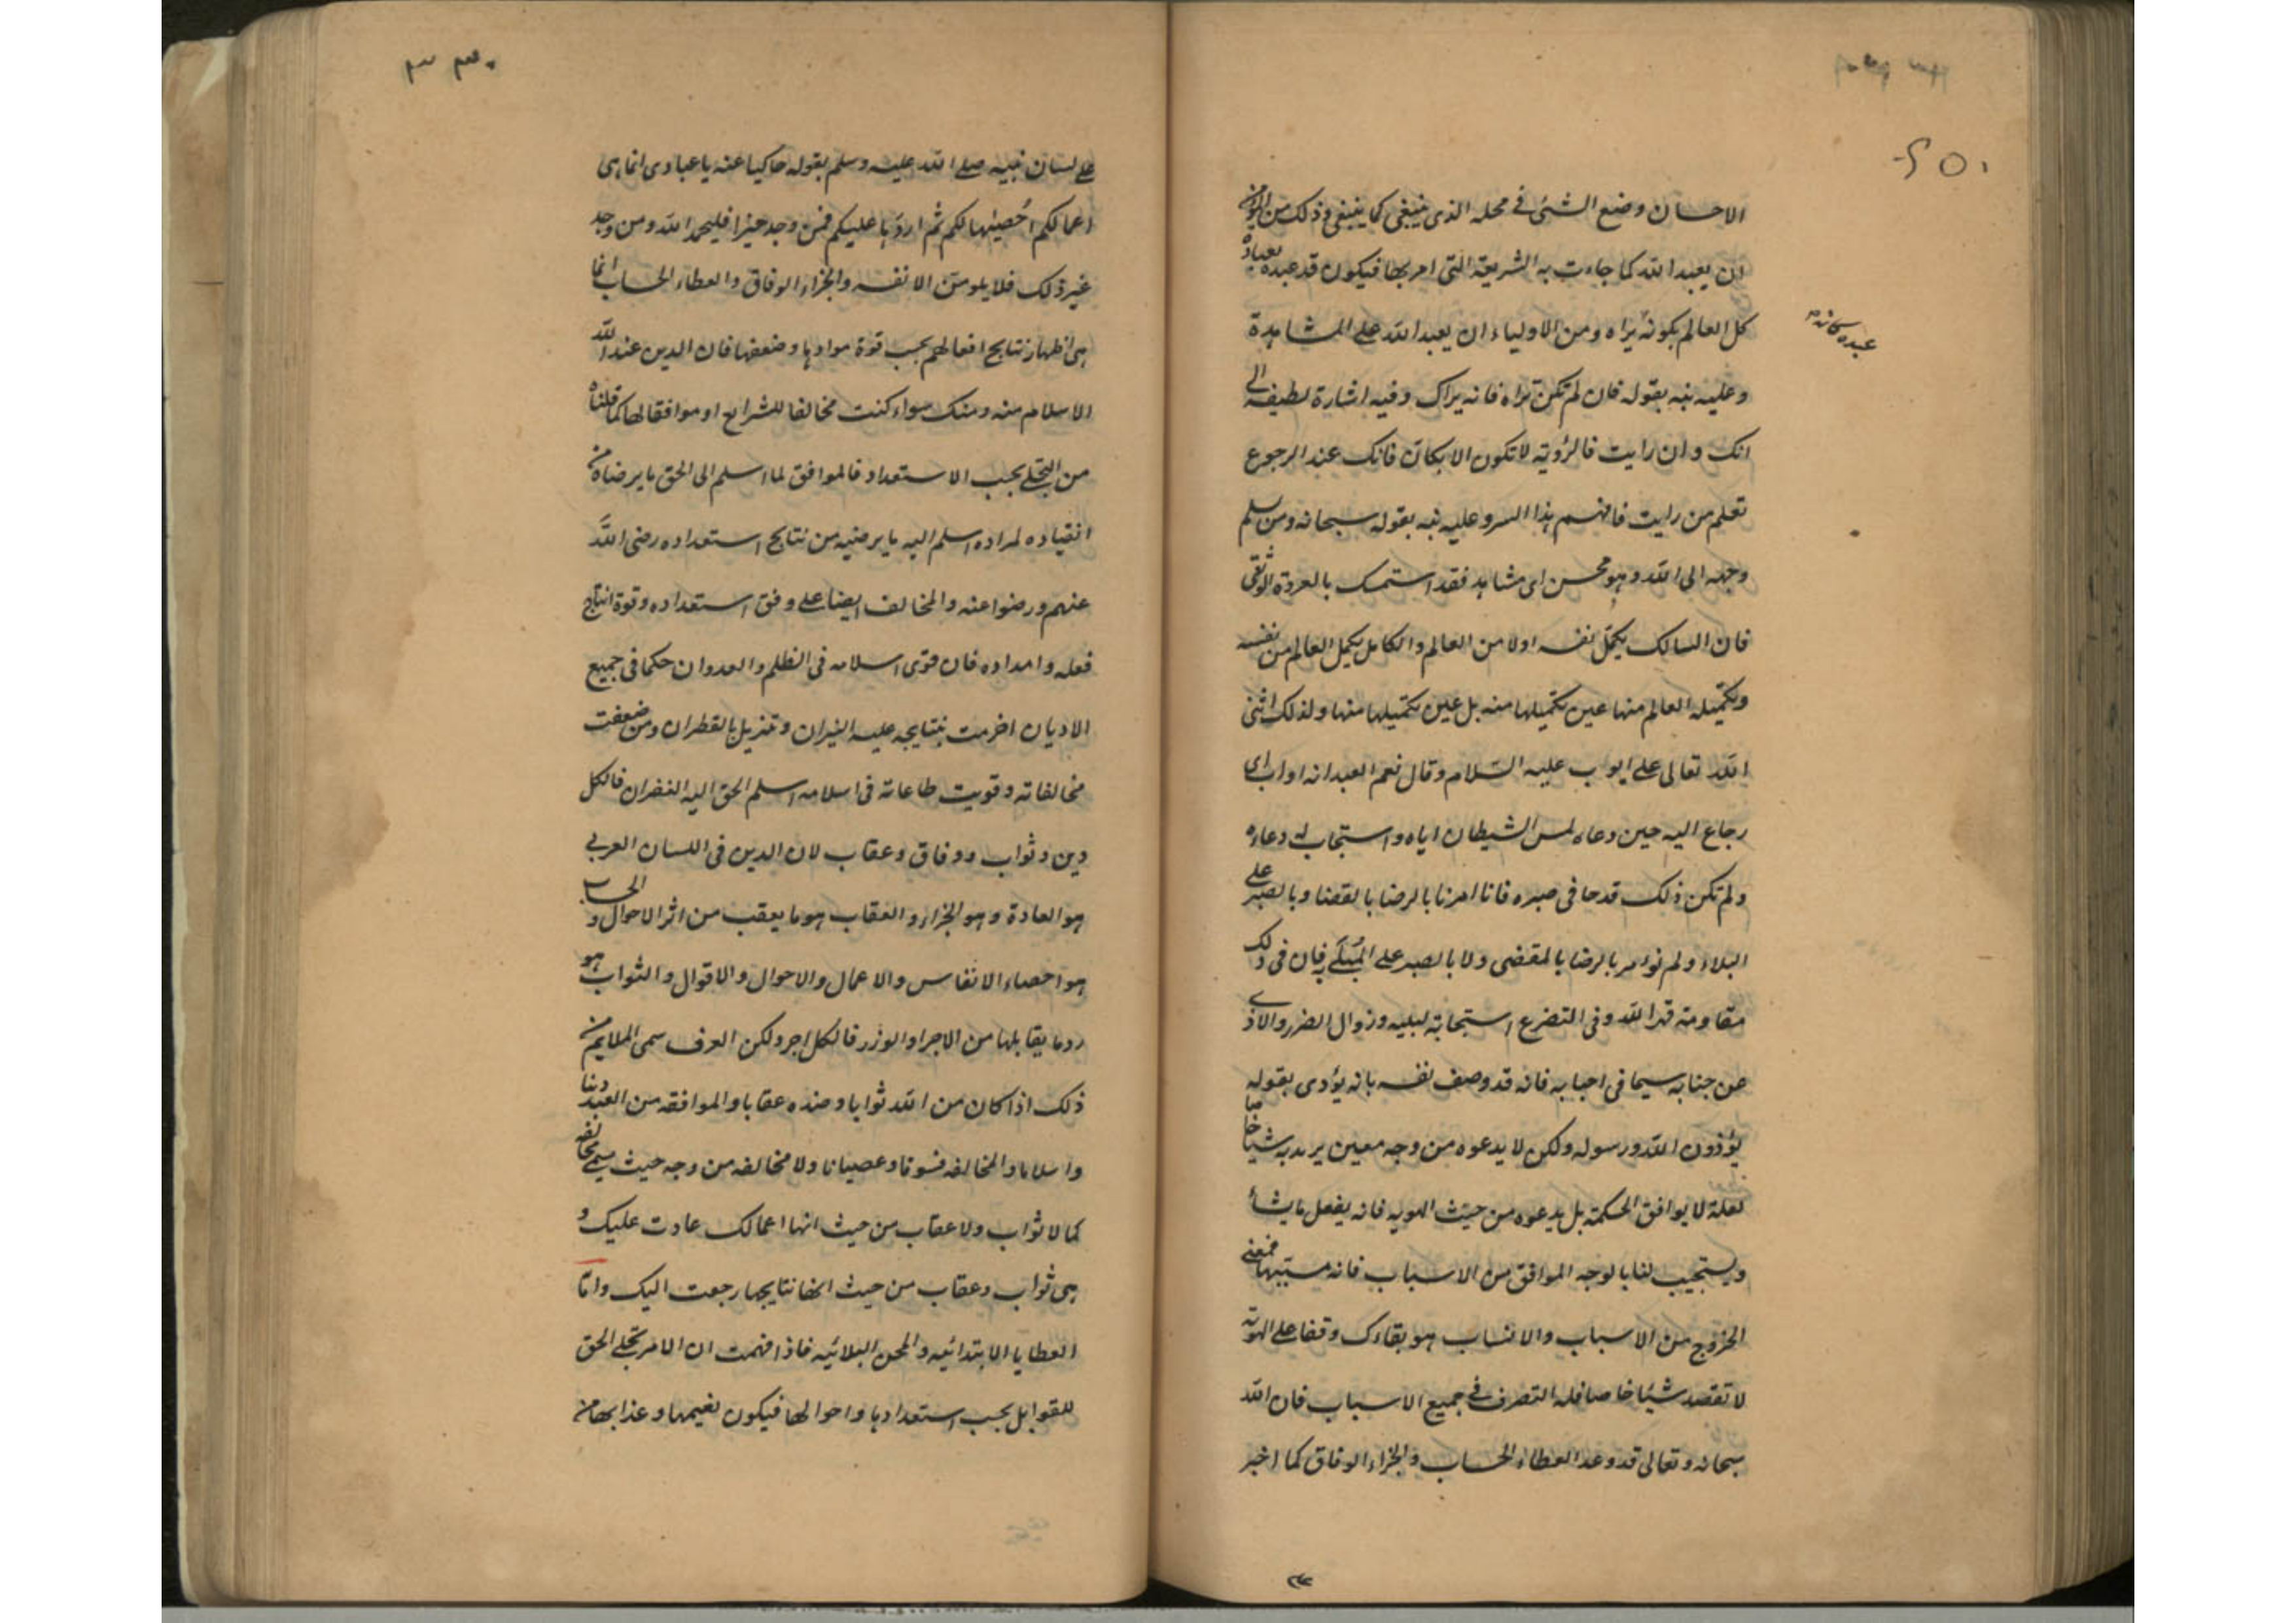 الاحسان وضع الشئ في محله الذى ينبغى كما ينبغى وذلك من المؤمن
ان يعبد الله كما جاءت به الشريعة التى امر بها فيكون قد عبده بعبادة
كل العالم بكونه يراه ومن الاولياء ان يعبد الله على المشاهدة
وعليه نبه بقوله فان لم تكن تراه فانه يراك وفيه اشارة لطيفه الى
انك وان رايت فالرؤية لا تكون الا بكان فانك عند الرجوع
تعلم من رايت فافهم هذا السر وعليه نبه بقوله سبحانه ومن يسلم
وجهه الى الله وهو محسن اى مشاهد فقد استمسك بالعروة الوثقى
فان السالك يكمّل نفسه اولا من العالم والكامل يكمل العالم من نفسه
وتكميله العالم منها عين تكميلها منه بل عين تكميلها منها ولذلك اثنى
الله تعالى على ايوب عليه السلام وقال نعم العبد انه اواب اى
رجاع اليه حين دعاه لمس الشيطان اياه واستجاب له دعاءه
ولم تكن ذلك قدحا فى صبره فانا امرنا بالرضا بالقضا وبالصبر على
البلاء ولم نوامر بالرضا بالمقضى ولا بالصبر على المبتلى به فان فى ذلك
مقاومة قهر الله وفى التضرع استجابة لبليه وزوال الضرر والاذى
عن جنابه سيما فى احبابه فانه قد وصف نفسه بانه يؤذى بقوله
يؤذون الله ورسوله ولكن لا يدعوه من وجه معين يريد به شيئا خاصا
لعلة لا يوافق الحكمة بل يدعوه من حيث الهويه فانه يفعل ما يشأ
ويستجيب لنا بالوجه الموافق من الاسباب فانه مسببها فمعنى
الخروج من الاسباب والانساب هو بقاءك وقفا على الهوية
لا تقصد شيئا خاصا فله التصرف فى جميع الاسباب فان الله
سبحانه وتعالى قد وعد العطاء الحساب والجزاء الوفاق كما اخبر
عبده كانه
على لسان نبيه صلى الله عليه وسلم بقوله حاكيا عنه يا عبادى انما هى
اعمالكم احصيها لكم ثم اردها عليكم فمن وجد خيرا فليحمد الله ومن وجد
غير ذلك فلا يلومن الا نفسه والجزاء الوفاق والعطاء الحساب انما
هى اظهار نتايج افعالهم بحسب قوة موادها وضعفها فان الدين عند الله
الاسلام منه ومنك سواء كنت مخالفا للشرايع او موافقا لها كما قلناه
من التجلى بحسب الاستعداد فالموافق لما اسلم الى الحق ما يرضاه من
انقياده لمراده اسلم اليه ما يرضيه من نتايج استعداده رضى الله
عنهم ورضوا عنه والمخالف ايضا على وفق استعداده وقوة انتاج
فعله وامداده فان قوى اسلامه فى الظلم والعدوان حكما فى جميع
الاديان اضرمت بنتايجه عليه النيران وتمزيل بالقطران ومن ضعفت
مخالفاته وقويت طاعاته فى اسلامه اسلم الحق اليه الغفران فالكل
دين وثواب ووفاق وعقاب لان الدين فى اللسان العربى
هو العادة وهو الجزاء والعقاب هو ما يعقب من اثر الاحوال و الحساب
هو احصاء الانفاس والاعمال والاحوال والاقوال والثواب هو
رد ما يقابلها من الاجر او الوزر فالكل اجر ولكن العرف سمى الملايم من
ذلك اذا كان من الله ثوابا وضده عقابا والموافقه من العبد دينا
واسلاما والمخالفه فسوقا وعصيانا ولا مخالفه من وجه حيث يسمى مخالفه
كما لا ثواب ولا عقاب من حيث انها اعمالك عادت عليك و
هى ثواب وعقاب من حيث انها نتايجها رجعت اليك واما
العطايا الابتدائيه والمحن البلائيه فاذا فهمت ان الامر تجلى الحق
للقوابل بحسب استعدادها واحوالها فيكون نعيمها وعذابها من